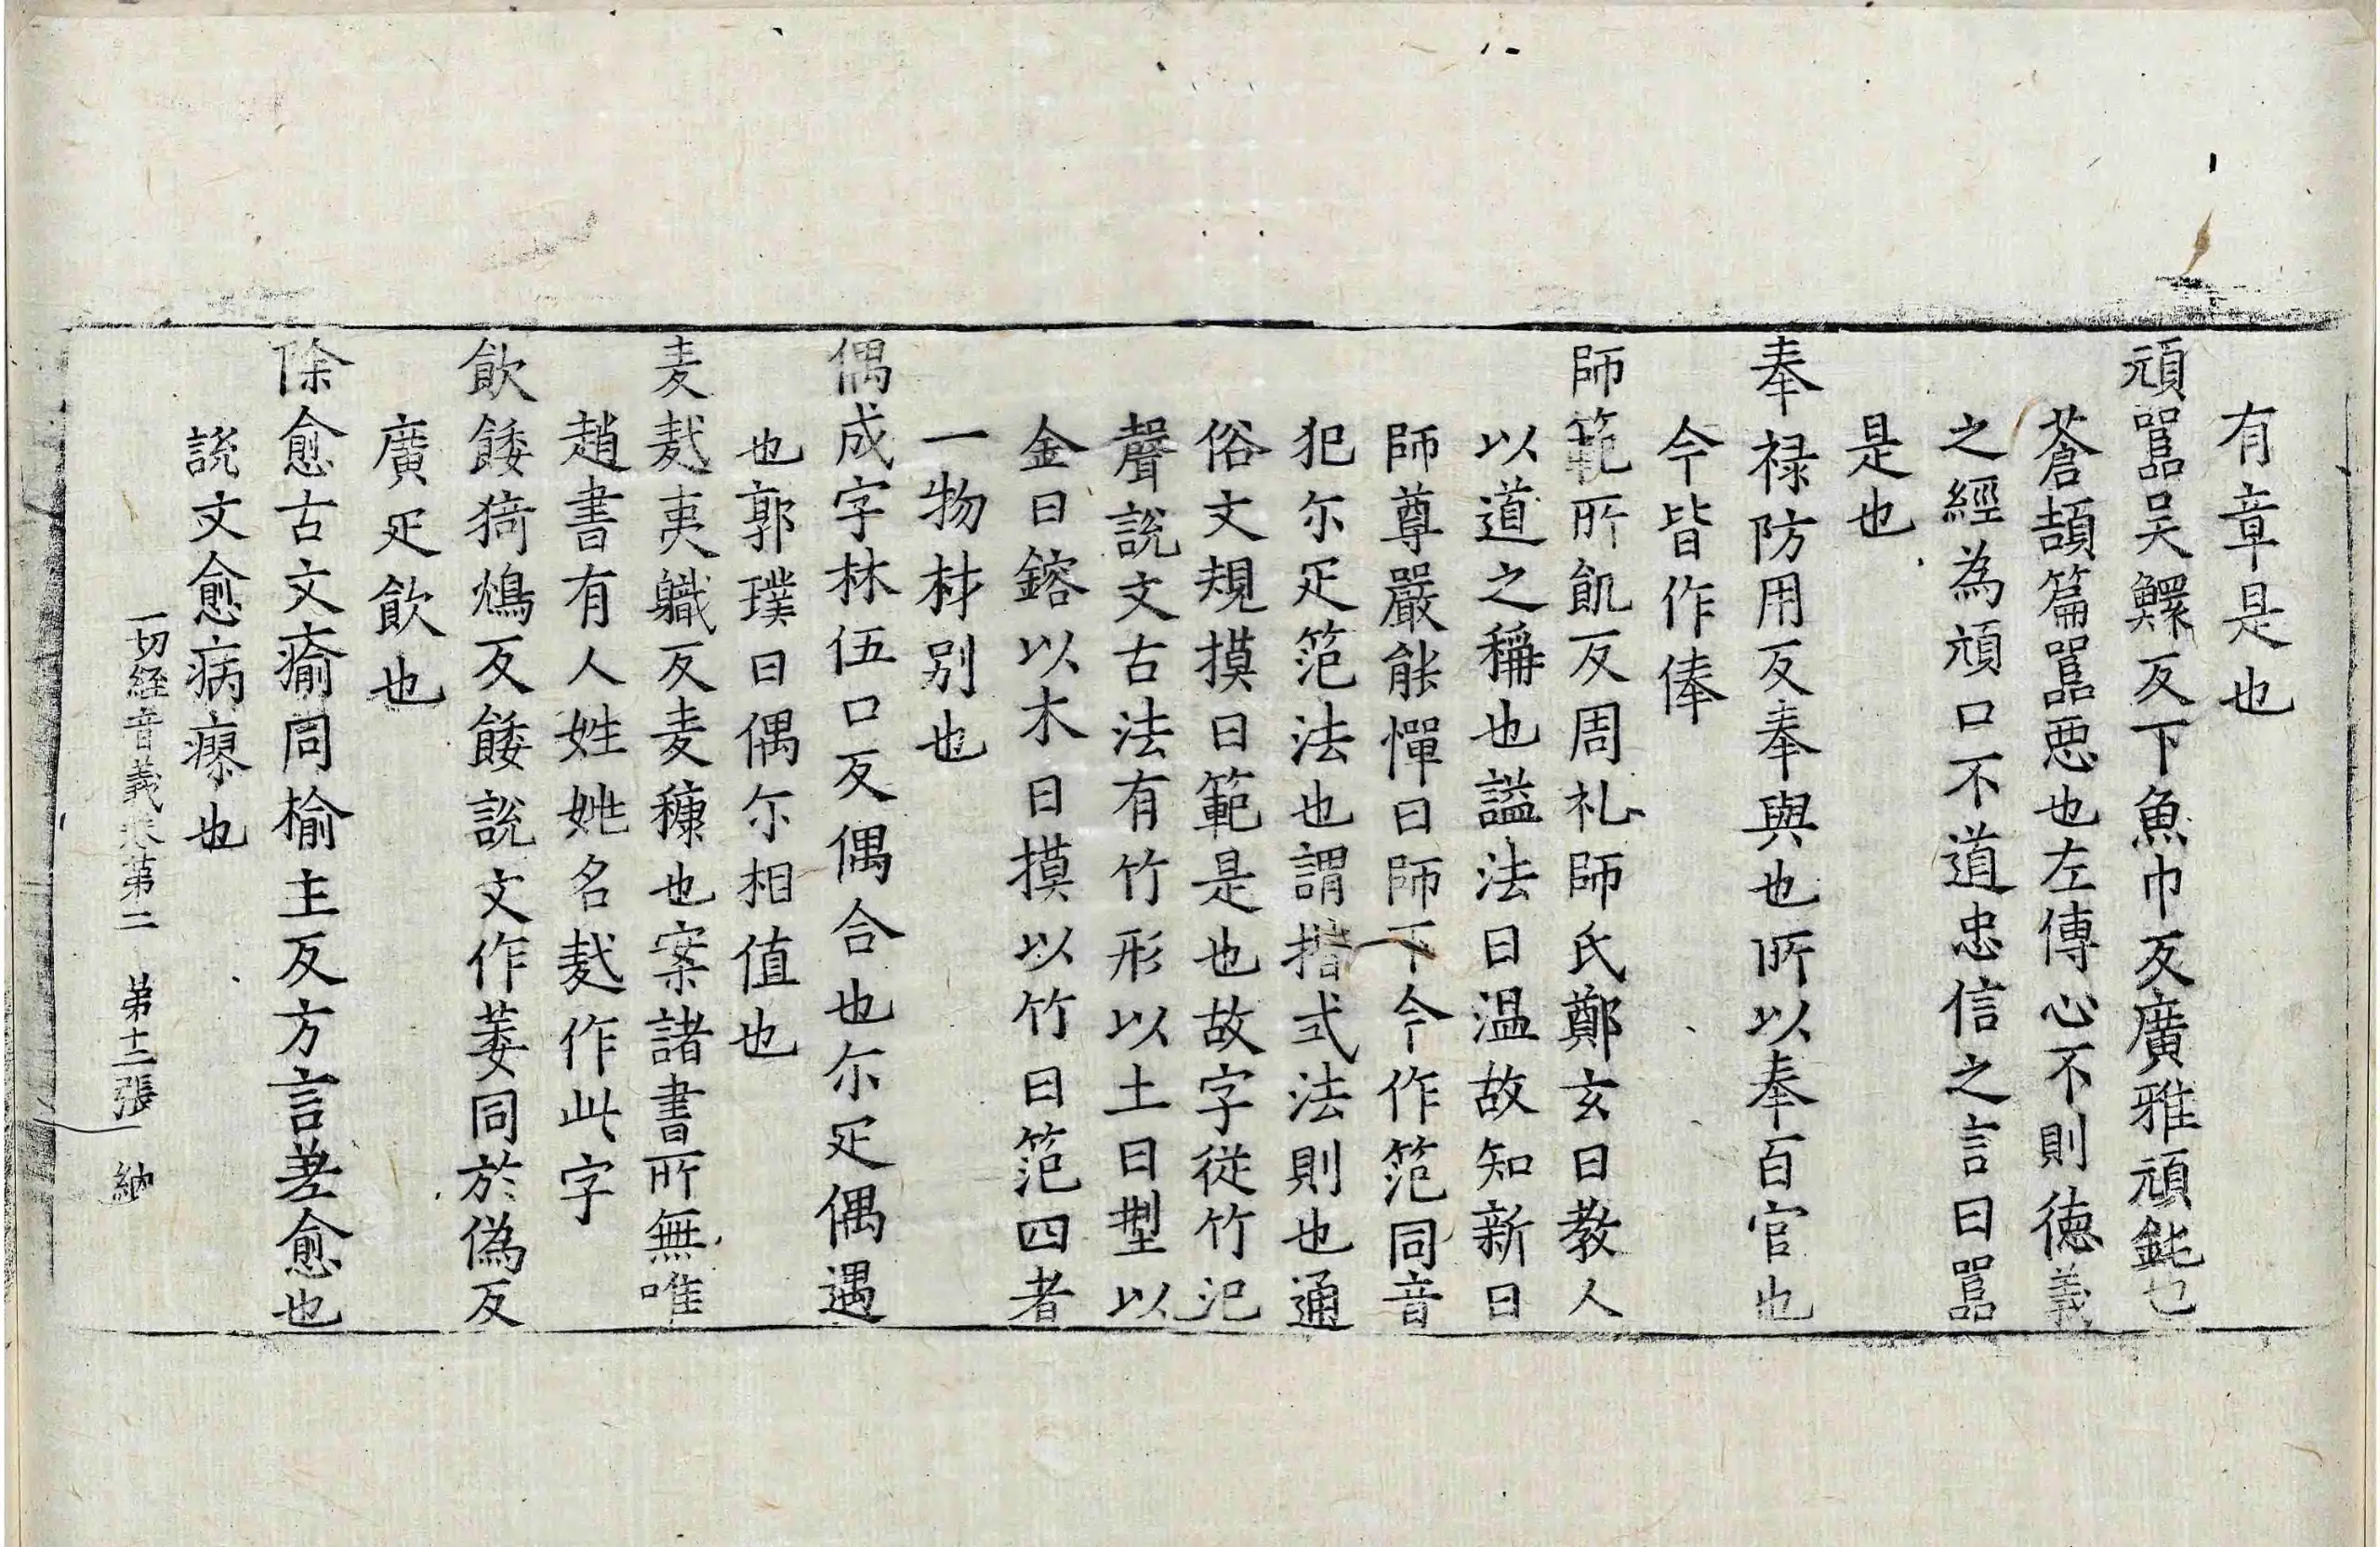 有章是也
頑嚚吴鰥反下魚巾反廣雅頑鈍也
蒼頡篇嚚悪也左傳心不則徳義
之經為頑口不道忠信之言曰嚚
是也
奉禄防用反奉與也所以奉百官也
今皆作俸
師範所飢反周礼師氏鄭玄曰教人
以道之稱也謚法曰温故知新曰
師尊嚴能憚曰師下今作笵同音
犯尓疋笵法也謂揩式法則也通
俗文規摸曰範是也故字従竹氾
聲說文古法有竹形以土曰型以
金曰鎔以木曰摸以竹曰笵四者
一物材别也
偶成字林伍口反偶合也尓疋偶遇
也郭璞曰偶尓相值也
麦麩夷職反麦糠也案諸書所無唯
趙書有人姓姚名麩作此字
飲餧猗鴆反餧說文作萎同於偽反
廣疋飲也
除愈古文瘉同榆主反方言差愈也
說文愈病瘳也
一切経音義卷第二 弟十二張 納